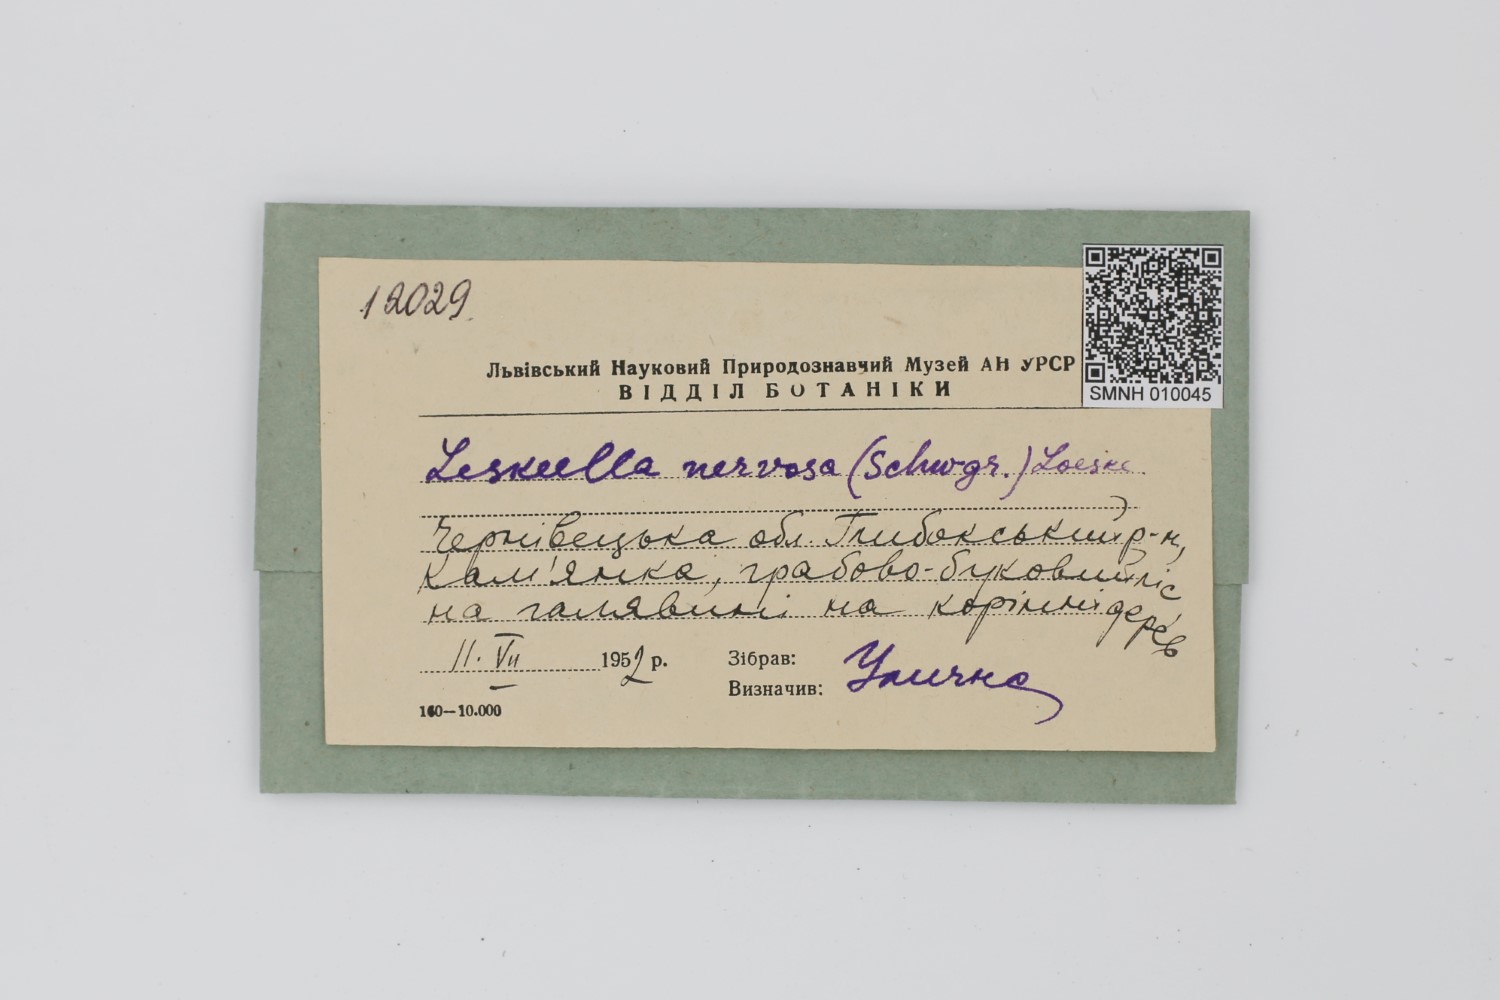 12029
Львівський Науковий Природознавчий Музей АН УРСР
ВІДДІЛ БОТАНІКИ
SMNH 010045
Leskeella nervosa (Schwgr.) Loeske
Чернівецька обл. Глибокський р-н,
Кам'янка, грабово-буковий ліс
на галявині на корінні дерев
11. VII 1952 р.
Зібрав: Улична
Визначив:
160—10.000